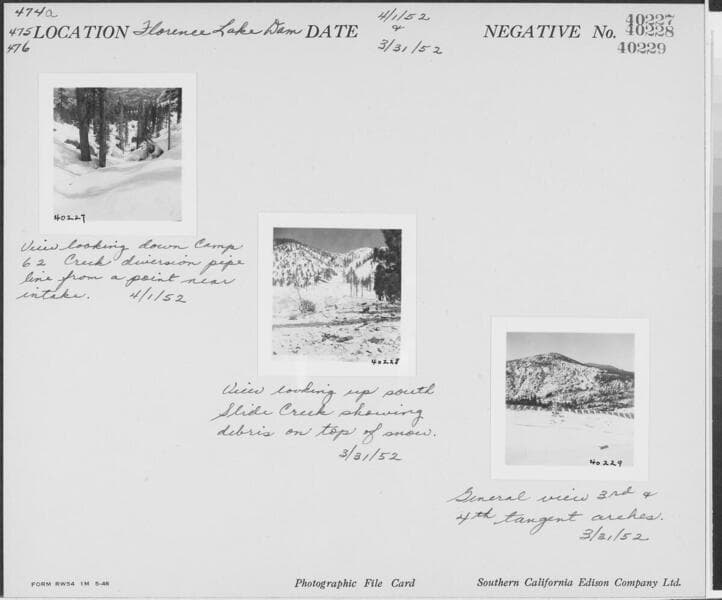 474a
475
476
LOCATION Florence Lake Dam DATE 4/1/52 & 3/31/52 NEGATIVE No. 40227
40228
40229
40227
View looking down Camp
62 Creek diversion pipe
line from a point near
intake. 4/1/52
40228
View looking up south
Slide Creek showing
debris on top of snow.
3/31/52
40229
General view 3rd &
4th tangent arches.
3/31/52
FORM RW54 1M 5-48 Photographic File Card Southern California Edison Company Ltd.